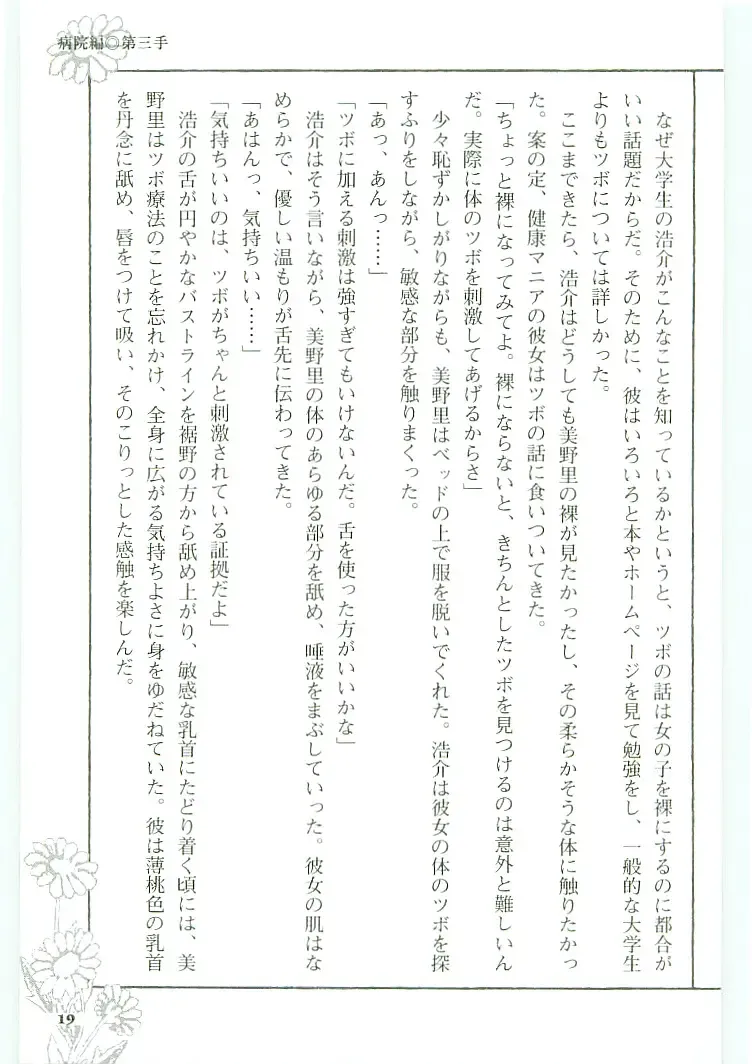 病院編◎第三手
なぜ大学生の浩介がこんなことを知っているかというと、ツボの話は女の子を裸にするのに都合が
いい話題だからだ。そのために、彼はいろいろと本やホームページを見て勉強をし、一般的な大学生
よりもツボについては詳しかった。
ここまできたら、浩介はどうしても美野里の裸が見たかったし、その柔らかそうな体に触りたかっ
た。案の定、健康マニアの彼女はツボの話に食いついてきた。
「ちょっと裸になってみてよ。裸にならないと、きちんとしたツボを見つけるのは意外と難しいん
だ。実際に体のツボを刺激してあげるからさ」
少々恥ずかしがりながらも、美野里はベッドの上で服を脱いでくれた。浩介は彼女の体のツボを探
すふりをしながら、敏感な部分を触りまくった。
「あっ、あんっ……」
「ツボに加える刺激は強すぎてもいけないんだ。舌を使った方がいいかな」
浩介はそう言いながら、美野里の体のあらゆる部分を舐め、唾液をまぶしていった。彼女の肌はな
めらかで、優しい温もりが舌先に伝わってきた。
「あはんっ、気持ちいい……」
「気持ちいいのは、ツボがちゃんと刺激されている証拠だよ」
浩介の舌が円やかなバストラインを裾野の方から舐め上がり、敏感な乳首にたどり着く頃には、美
野里はツボ療法のことを忘れかけ、全身に広がる気持ちよさに身をゆだねていた。彼は薄桃色の乳首
を丹念に舐め、唇をつけて吸い、そのこりっとした感触を楽しんだ。
19